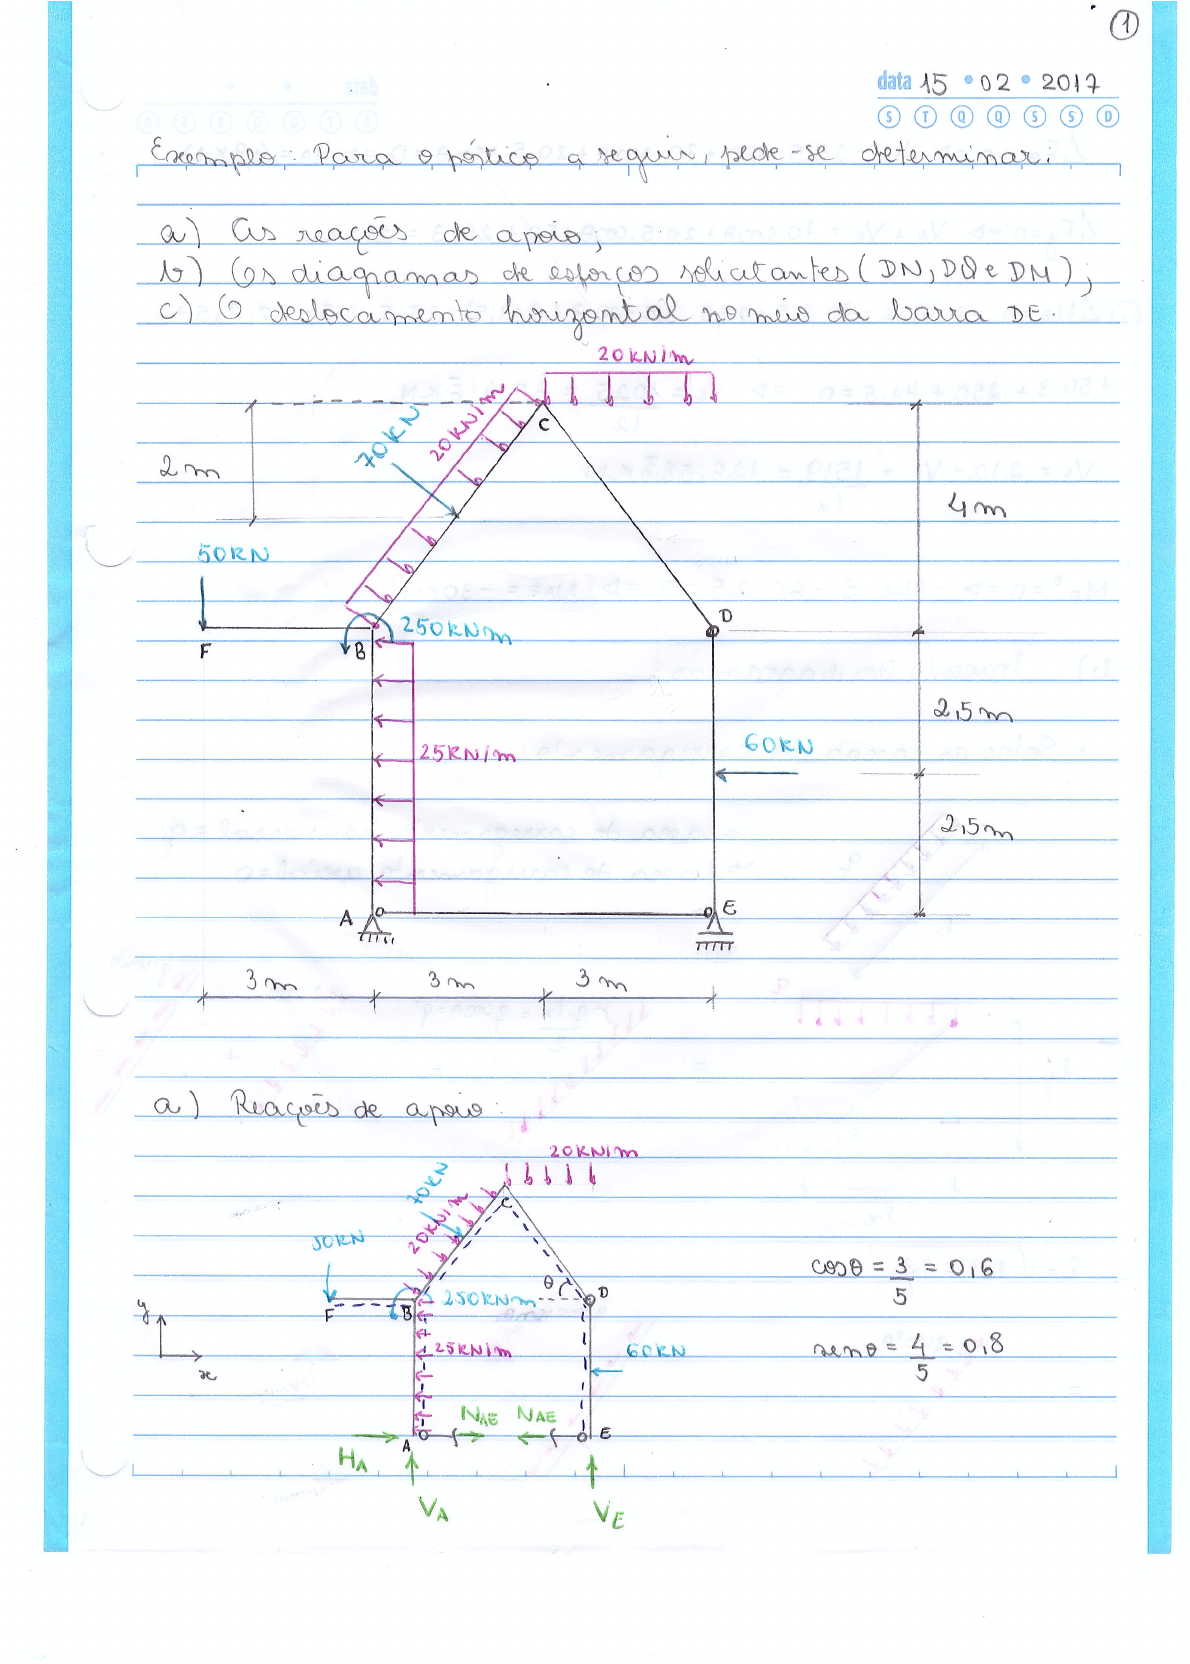 1
data 15 • 02 • 2017
S T Q Q S S D
Exemplo: Para o pórtico a seguir, pede-se determinar:
a) As reações de apoio;
b) Os diagramas de esforços solicitantes (DN, DQ e DM);
c) O deslocamento horizontal no meio da barra DE.
20KN/m
70KN
20KN/m
C
2m
4m
50KN
250KNm
D
F
B
2,5m
60KN
25KN/m
2,5m
A
E
3m
3m
3m
a) Reações de apoio:
20KN/m
70KN
20KN/m
C
50KN
cosθ = 3/5 = 0,6
θ
D
250KNm
F
B
y
25KN/m
60KN
senθ = 4/5 = 0,8
x
NAE NAE
A
E
HA
VA
VE